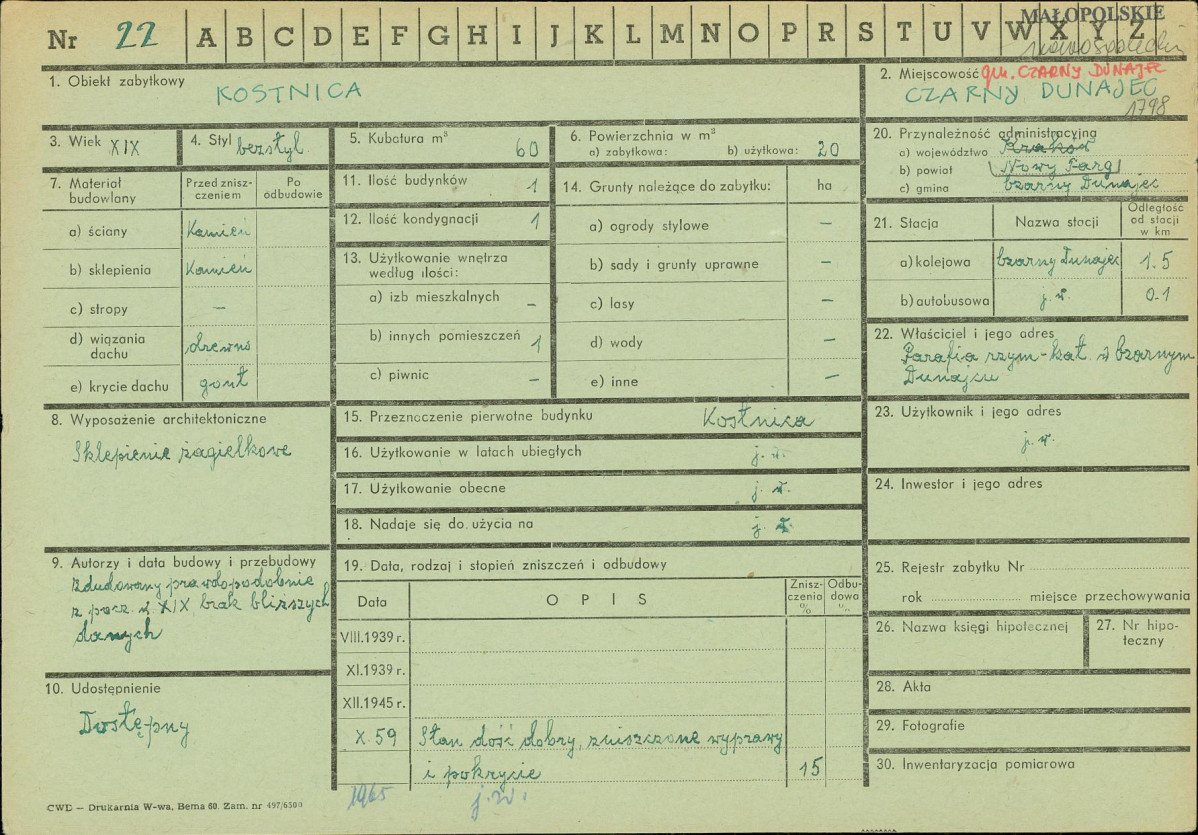 Nr 22 A B C D E F G H I J K L M N O P R S T U V W X Y Z
MAŁOPOLSKIE
1. Obiekt zabytkowy
KOSTNICA
2. Miejscowość gm. CZARNY DUNAJEC
CZARNY DUNAJEC
1798
3. Wiek XIX
4. Styl bezstyl.
5. Kubatura m³ 60
6. Powierzchnia w m²
a) zabytkowa: b) użytkowa: 20
20. Przynależność administracyjną
a) województwo Kraków
b) powiat Nowy Targ
c) gmina Czarny Dunajec
7. Materiał budowlany
Przed znisz-
czeniem
Po
odbudowie
a) ściany Kamień
b) sklepienia Kamień
c) stropy –
d) wiązania
dachu drewno
e) krycie dachu gont
11. Ilość budynków 1
12. Ilość kondygnacji 1
13. Użytkowanie wnętrza
według ilości:
a) izb mieszkalnych –
b) innych pomieszczeń 1
c) piwnic –
14. Grunty należące do zabytku: ha
a) ogrody stylowe –
b) sady i grunty uprawne –
c) lasy –
d) wody –
e) inne –
21. Stacja Nazwa stacji
Odległość
od stacji
w km
a) kolejowa Czarny Dunajec 1.5
b) autobusowa j. w. 0.1
22. Właściciel i jego adres
Parafia rzym-kat. w Czarnym
Dunajcu
8. Wyposażenie architektoniczne
Sklepienie żagielkowe
15. Przeznaczenie pierwotne budynku Kostnica
16. Użytkowanie w latach ubiegłych j. w.
17. Użytkowanie obecne j. w.
18. Nadaje się do użycia na j. w.
23. Użytkownik i jego adres
j. w.
24. Inwestor i jego adres
9. Autorzy i data budowy i przebudowy
Zbudowany prawdopodobnie
z pocz. w. XIX brak bliższych
danych
10. Udostępnienie
Dostępny
19. Data, rodzaj i stopień zniszczeń i odbudowy
Data OPIS
Znisz-
czenia
%
Odbu-
dowa
%
VIII.1939 r.
XI.1939 r.
XII.1945 r.
X.59 Stan dość dobry, zniszczone wyprawy
i pokrycie 15
1965 j.w.
25. Rejestr zabytku Nr
rok miejsce przechowywania
26. Nazwa księgi hipotecznej
27. Nr hipo-
teczny
28. Akta
29. Fotografie
30. Inwentaryzacja pomiarowa
CWD — Drukarnia W-wa, Bema 60. Zam. nr 497/6500